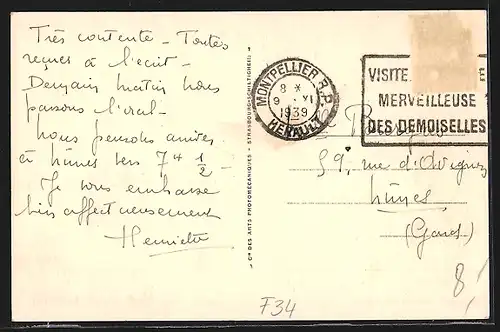 Très contente - Toutes
reçues à l'écrit -
Demain matin nous
passons l'oral -
Nous pensons arriver
à Nîmes vers 7 h 1/2 -
Je vous embrasse
bien affectueusement
Henriette
Cie DES ARTS PHOTOMÉCANIQUES - STRASBOURG-SCHILTIGHEIM
MONTPELLIER R.P.
8 *
9 - VI
1939
HERAULT
VISITE
MERVEILLEUSE
DES DEMOISELLES
59, rue d'Avignon
Nîmes
(Gard)
8/
F34